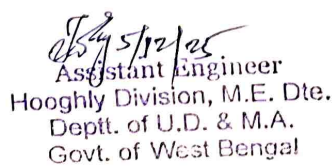 5/12/25
Assistant Engineer
Hooghly Division, M.E. Dte.
Deptt. of U.D. & M.A.
Govt. of West Bengal